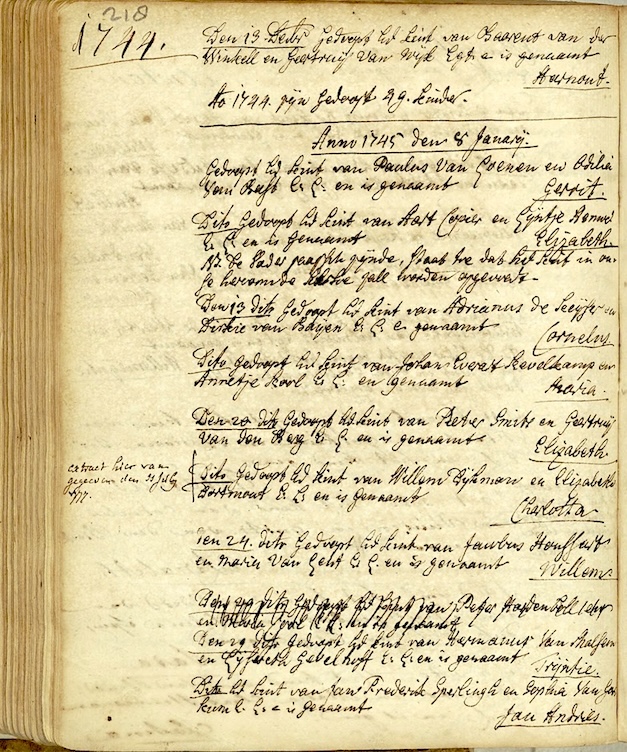 218
1744.
Den 13 Decbr Gedoopt het kint van Baerent van der
Winkell en Geertruij Van Wijk Egt: e is genaamt
Harnout.
Ao 1744. zijn Gedoopt 29. kinder.
Anno 1745 den 8 Januarij.
Gedoopt het kint van Paulus Van Coenen en Odilia
Van E: L: en is genaamt
Gerrit.
Dito Gedoopt het kint van Hart en Eijntje
E: L: en is Genaamt
Elizabeth
NB. De Vader zijnde, staat toe dat het kint in
de kerke zall worden opgevoedt.
Den 13 dito Gedoopt het kint van Adrianus de
Dirkie van E: L: e genaamt
Cornelus
Dito gedoopt het kint van Johan Evert Revelkamp en
Annetje E: L: en genaamt
Maria.
Den 20 dito Gedoopt het kint van Peter Smits en Geertruij
Van den Berg E: L: en is genaamt
Elizabeth
extract hier van
gegeven den 31 July
777.
Dito Gedoopt het kint van Willem Dijkman en Elizabeth
Dortmont E: L: en is Genaamt
Charlotta
den 24. dito Gedoopt het kint van Jacobus
en Maria Van E: L: en is genaamt
Willem
Den 29 dito Gedoopt het kint van Peter
en Maria
Den 29 dito Gedoopt het kint van Hermanus Van
en Eijsbeth Gebelhoff E: L: en is genaamt
Trijntie.
Dito het kint van Jan Frederik Sperlingh en Sophia Van
E: L: e is genaamt
Jan Andries.